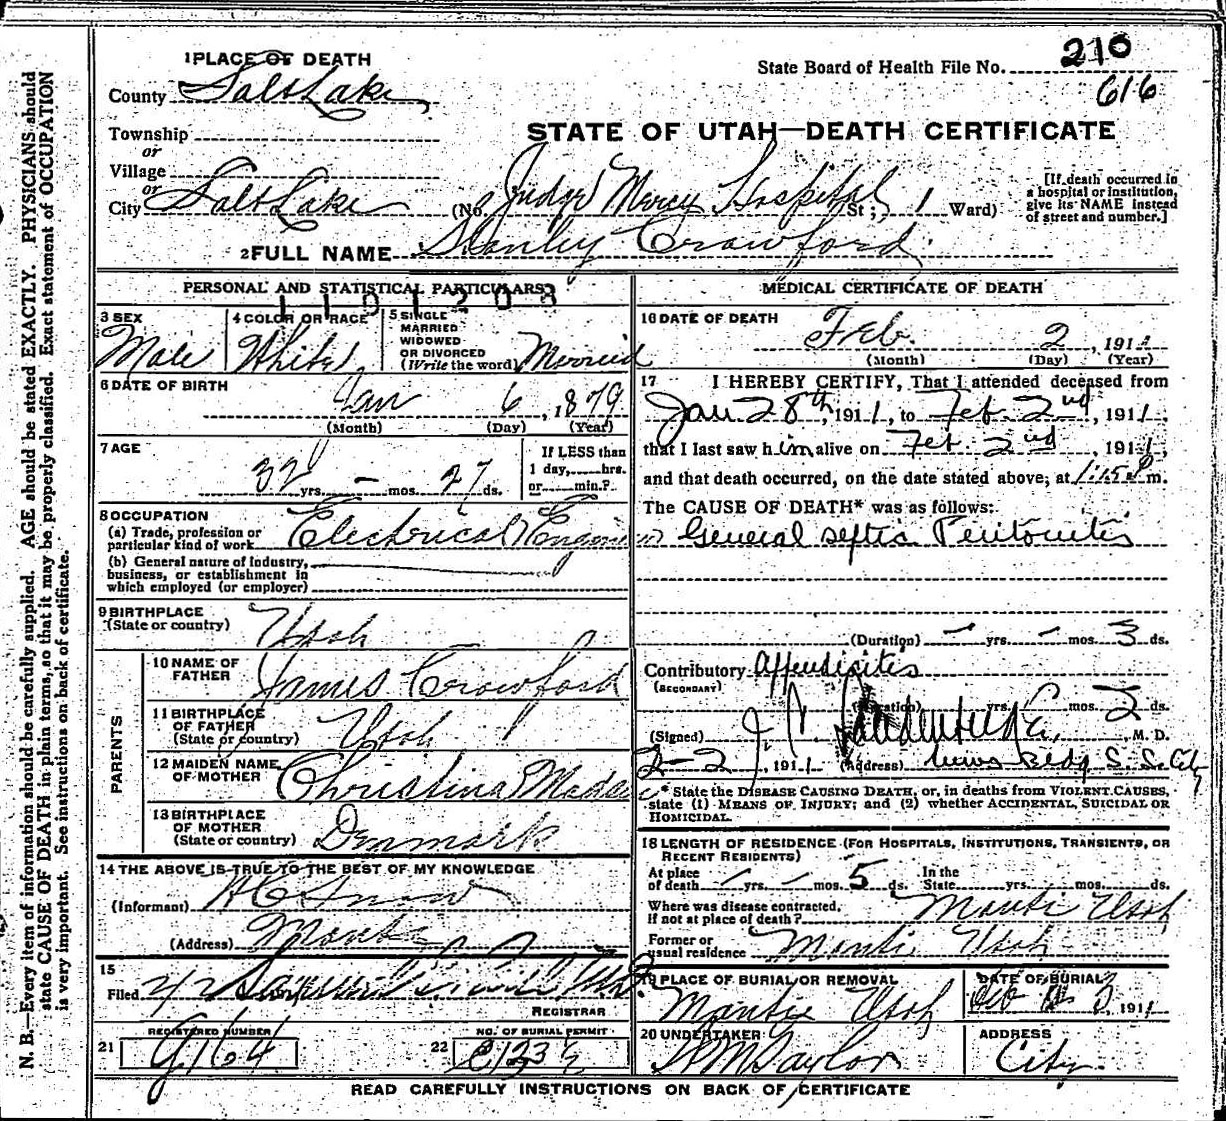 1 PLACE OF DEATH
County Salt Lake
State Board of Health File No. 210
616
Township
or
Village
or
City Salt Lake
STATE OF UTAH—DEATH CERTIFICATE
(No. Judge Mercy Hospital St.; 1 Ward)
[If death occurred in a hospital or institution, give its NAME instead of street and number.]
2 FULL NAME Stanley Crawford
PERSONAL AND STATISTICAL PARTICULARS
110 1208
3 SEX
Male
4 COLOR OR RACE
White
5 SINGLE
MARRIED
WIDOWED
OR DIVORCED
(Write the word) Married
6 DATE OF BIRTH
Jan 6, 1879
(Month) (Day) (Year)
7 AGE
32 yrs. – mos. 27 ds.
If LESS than
1 day, hrs.
or min.?
8 OCCUPATION
(a) Trade, profession or
particular kind of work Electrical Engineer
(b) General nature of industry,
business, or establishment in
which employed (or employer)
9 BIRTHPLACE
(State or country) Utah
PARENTS
10 NAME OF
FATHER James Crawford
11 BIRTHPLACE
OF FATHER
(State or country) Utah
12 MAIDEN NAME
OF MOTHER Christina
13 BIRTHPLACE
OF MOTHER
(State or country) Denmark
14 THE ABOVE IS TRUE TO THE BEST OF MY KNOWLEDGE
(Informant) H C Snow
(Address) Manti
15
Filed
REGISTRAR
REGISTERED NUMBER
21 G164
NO. OF BURIAL PERMIT
22
MEDICAL CERTIFICATE OF DEATH
16 DATE OF DEATH
Feb. 2, 1911
(Month) (Day) (Year)
17 I HEREBY CERTIFY, That I attended deceased from
Jan 28th, 1911, to Feb. 2nd, 1911,
that I last saw him alive on Feb. 2nd, 1911,
and that death occurred, on the date stated above, at P m.
The CAUSE OF DEATH* was as follows:
General septic Peritonitis
(Duration) – yrs. – mos. 3 ds.
Contributory Appendicitis
(SECONDARY)
(Duration) yrs. mos. 2 ds.
(Signed) M. D.
2-2, 1911 (Address) News Bldg S. L. City
* State the DISEASE CAUSING DEATH, or, in deaths from VIOLENT CAUSES,
state (1) MEANS OF INJURY; and (2) whether ACCIDENTAL, SUICIDAL OR
HOMICIDAL.
18 LENGTH OF RESIDENCE (FOR HOSPITALS, INSTITUTIONS, TRANSIENTS, OR
RECENT RESIDENTS)
At place
of death – yrs. – mos. 5 ds.
In the
State yrs. mos. ds.
Where was disease contracted,
If not at place of death? Manti Utah
Former or
usual residence Manti Utah
19 PLACE OF BURIAL OR REMOVAL
Manti Utah
DATE OF BURIAL
3, 1911
20 UNDERTAKER
S M Taylor
ADDRESS
City.
READ CAREFULLY INSTRUCTIONS ON BACK OF CERTIFICATE
N. B.—Every item of information should be carefully supplied. AGE should be stated EXACTLY. PHYSICIANS should
state CAUSE OF DEATH in plain terms, so that it may be properly classified. Exact statement of OCCUPATION
is very important. See instructions on back of certificate.